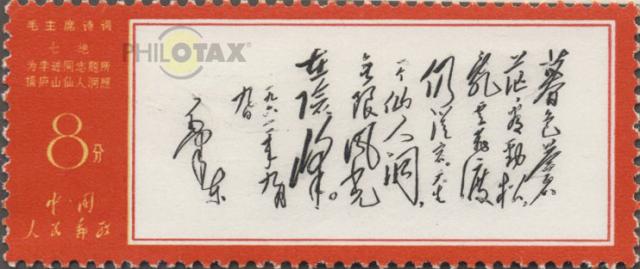 毛主席诗词
七绝
为李进同志题所
摄庐山仙人洞照
8分
中国
人民邮政
PHILOTAX®
暮色苍
茫看劲松,
乱云飞渡
仍从容。天生
一个仙人洞,
无限风光
在险峰。
一九六一年九月
九日
毛泽东